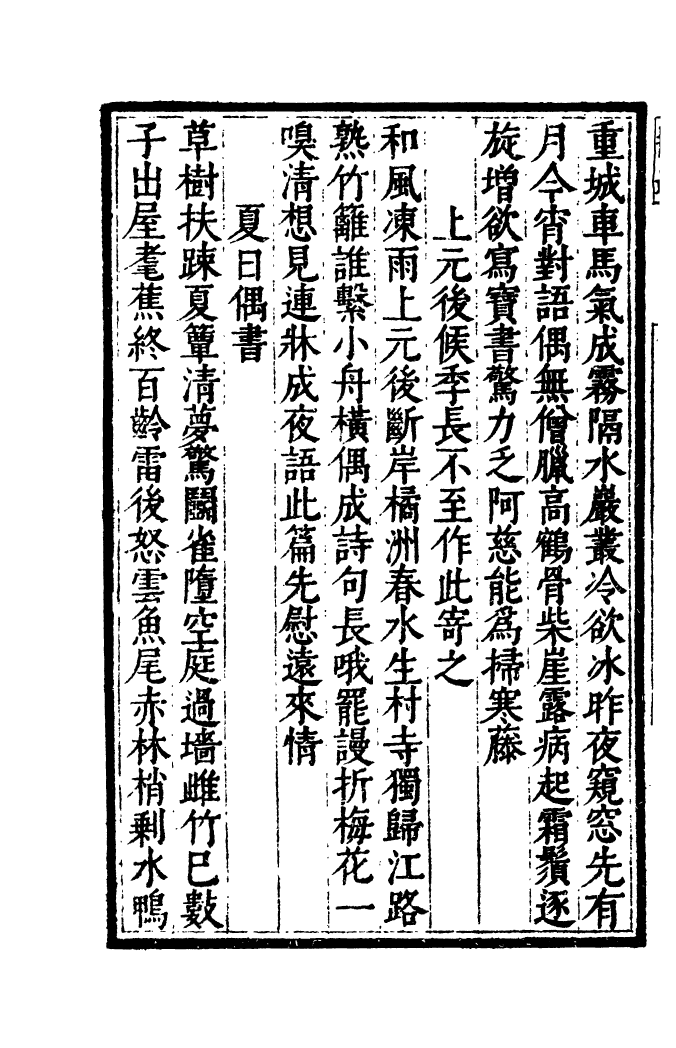 重城車馬氣成霧隔水巖叢冷欲冰昨夜窺窓先有
月今宵對語偶無僧臘高鶴骨柴崖露病起霜鬚逐
旋增欲寫寶書驚力乏阿慈能爲掃寒藤
上元後候季長不至作此寄之
和風凍雨上元後斷岸橘洲春水生村寺獨歸江路
熟竹籬誰繫小舟橫偶成詩句長哦罷謾折梅花一
嗅清想見連牀成夜語此篇先慰遠來情
夏日偶書
草樹扶踈夏簟清夢驚鬭雀墮空庭過墻雌竹巳數
子出屋耄蕉終百齡雷後怒雲魚尾赤林梢剩水鴨